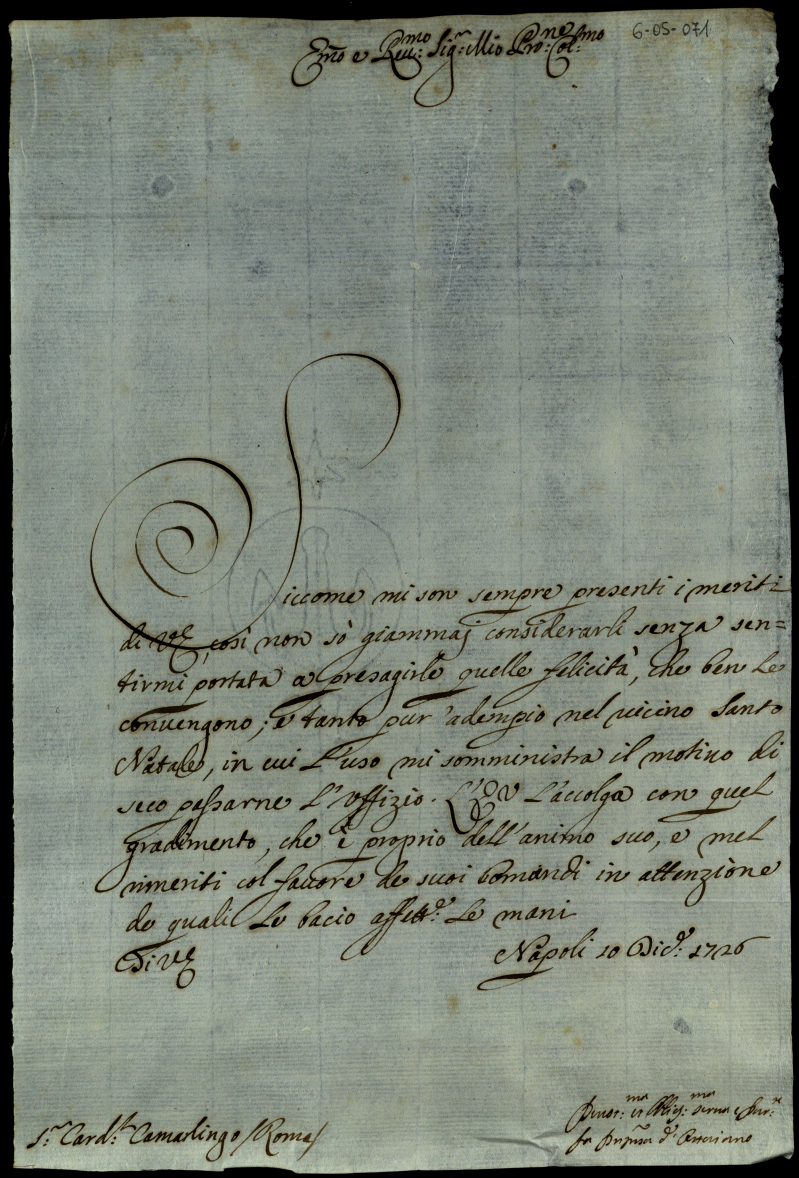 6-05-071
Em̃o e Reu:mo Sig:r Mio Pro:ne Col:mo
Siccome mi son sempre presenti i meriti
di VE, così non sò giammaj considerarli senza sen=
tirmi portata a presagirle quelle felicità, che ben le
conuengono; e tanto pur'adempio nel uicino Santo
Natale, in cui l'uso mi somministra il motiuo di
seco passarne l'Vffizio. L'EV l'accolga con quel
gradimento, che è proprio dell'animo suo, e mel
rimeriti col fauore de suoi Comandi in attenzione
de quali le bacio affett:e le mani
Di VE
Napoli 10 Dic:e 1726
S:r Card:l Camarlingo /Roma/
Deuot:ma et Obblig:ma serua e